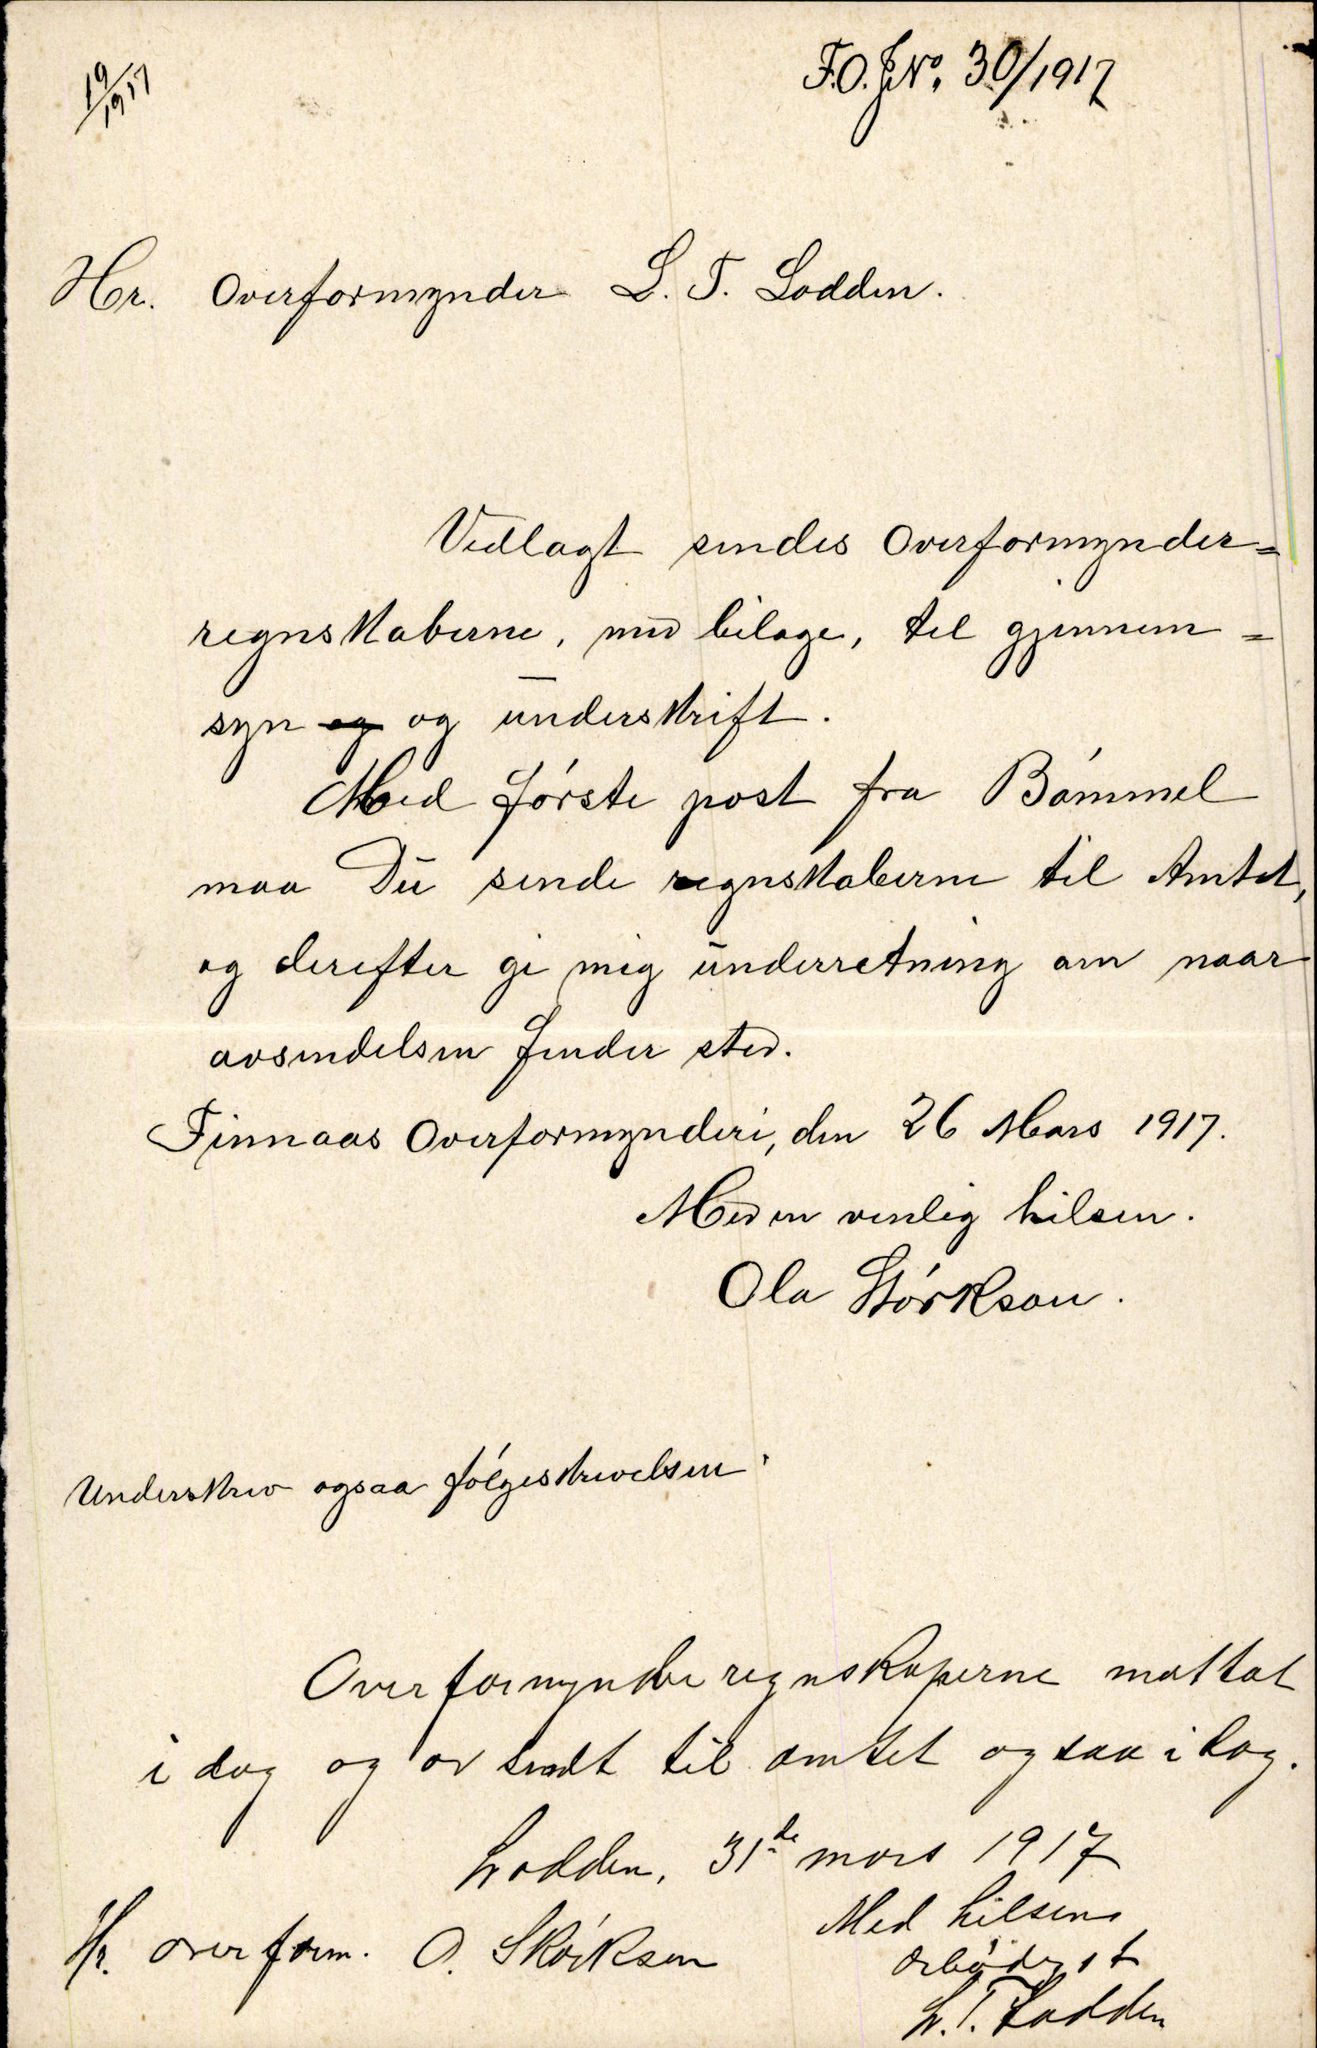 19/1917
F.O.J.No. 30/1917
Hr. Overformynder L. T. Lodden.
Vedlagt sendes Overformynder=
regnskaberne, med bilage, til gjennem=
syn og og underskrift.
Med første post fra Bømmel
maa Du sende regnskaberne til Amtet,
og derefter gi mig underretning om naar
avsendelsen finder sted.
Finnaas Overformynderi, den 26 Mars 1917.
Med en venlig hilsen.
Ola Størkson.
Underskriv ogsaa følgeskrivelsen.
Overformynderregnskaperne mottat
i dag og avsendt til amtet ogsaa idag.
Lodden, 31de mars 1917
Med hilsen
Hr. overform. O. Størkson
ærbødigst
L. T. Lodden